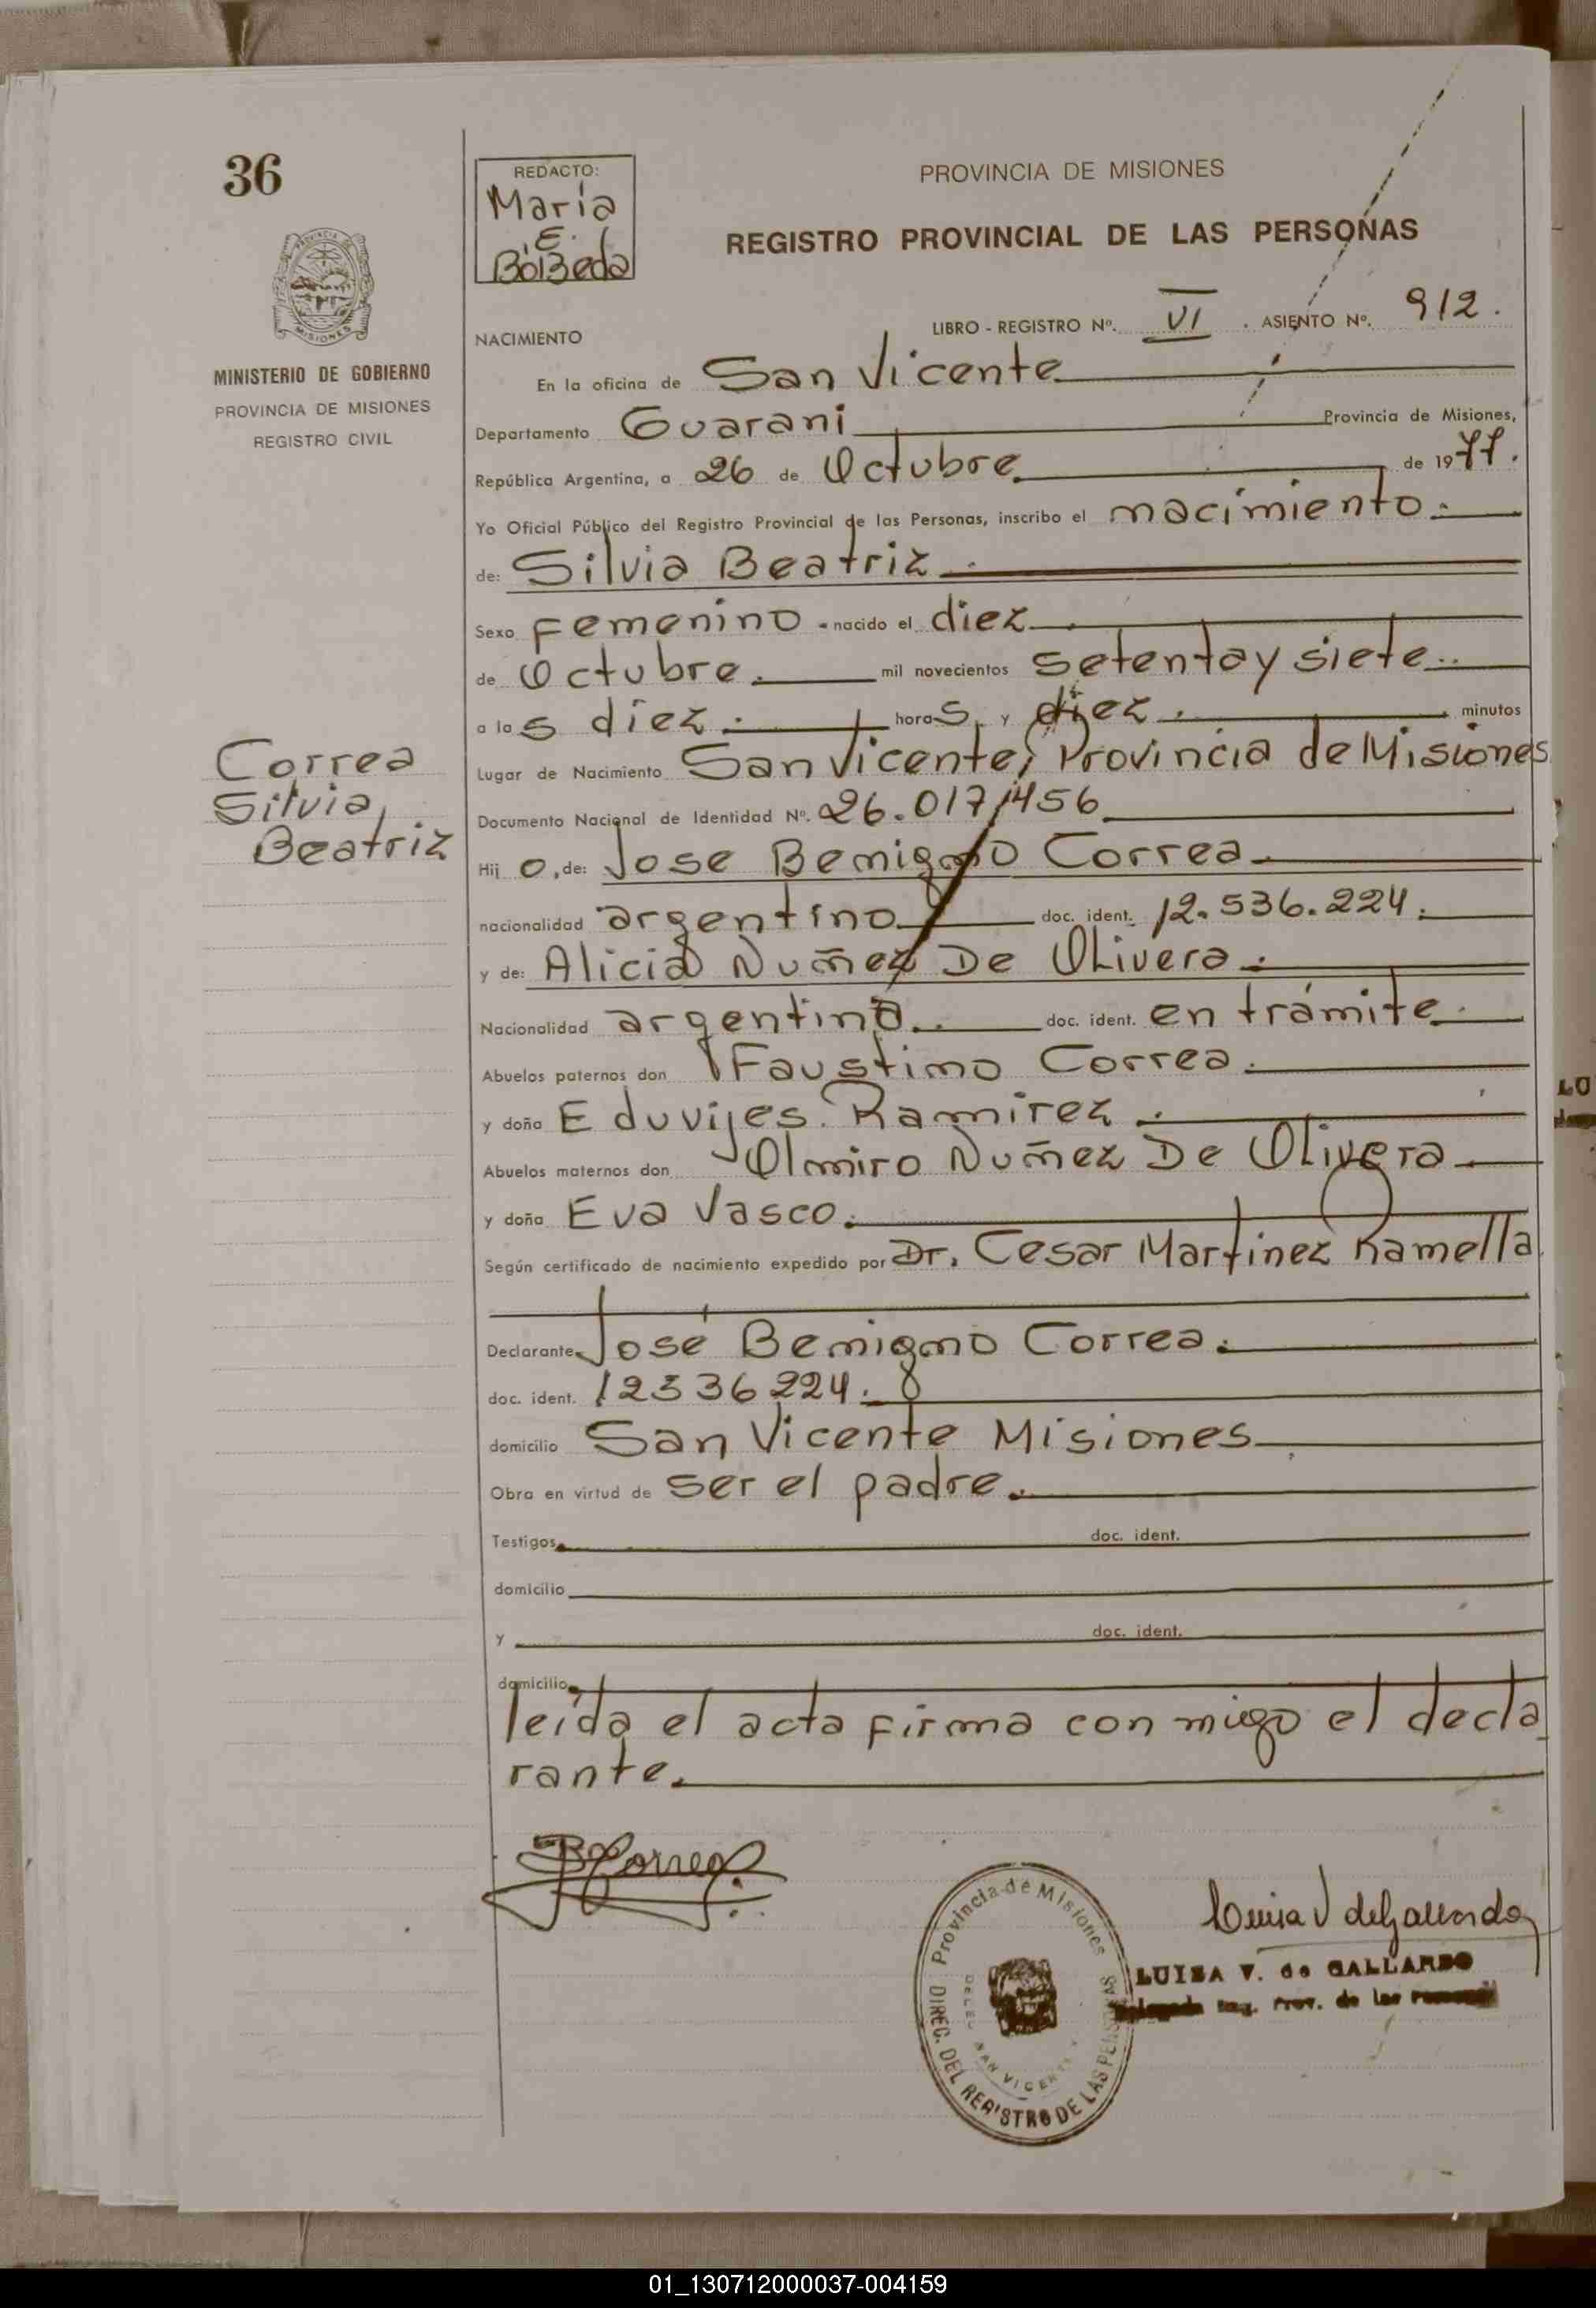 36
REDACTO:
Maria
E.
Boizeda
PROVINCIA DE MISIONES
REGISTRO PROVINCIAL DE LAS PERSONAS
MINISTERIO DE GOBIERNO
PROVINCIA DE MISIONES
REGISTRO CIVIL
NACIMIENTO LIBRO - REGISTRO Nº. VI . ASIENTO Nº. 912.
En la oficina de San Vicente
Departamento Guarani Provincia de Misiones,
República Argentina, a 26 de Octubre de 1977.
Yo Oficial Público del Registro Provincial de las Personas, inscribo el nacimiento.
de: Silvia Beatriz.
Sexo Femenino - nacido el diez
de Octubre. mil novecientos setenta y siete..
a las diez. horas y diez. minutos
Lugar de Nacimiento San Vicente, Provincia de Misiones
Documento Nacional de Identidad Nº. 26.017,456
Hij o, de: Jose Benigno Correa
nacionalidad argentino doc. ident. 12.536.224.
y de: Alicia Nuñez De Olivera.
Nacionalidad argentina.. doc. ident. en trámite.
Abuelos paternos don Faustino Correa.
y doña Eduvijes Ramirez.
Abuelos maternos don Olmiro Nuñez De Olivera
y doña Eva Vasco.
Según certificado de nacimiento expedido por Dr. Cesar Martinez Ramella
Declarante José Benigno Correa.
doc. ident. 12536224.
domicilio San Vicente Misiones
Obra en virtud de ser el padre.
Testigos doc. ident.
domicilio
y doc. ident.
domicilio
leída el acta firma con migo el decla
rante.
Correa
Silvia
Beatriz
B Correa
Provincia de Misiones
DIREC. DEL REGISTRO DE LAS PERSONAS
SAN VICENTE
Luisa V de Gallardo
LUISA V. de GALLARDO
Delegada Reg. Prov. de las Personas
01_130712000037-004159